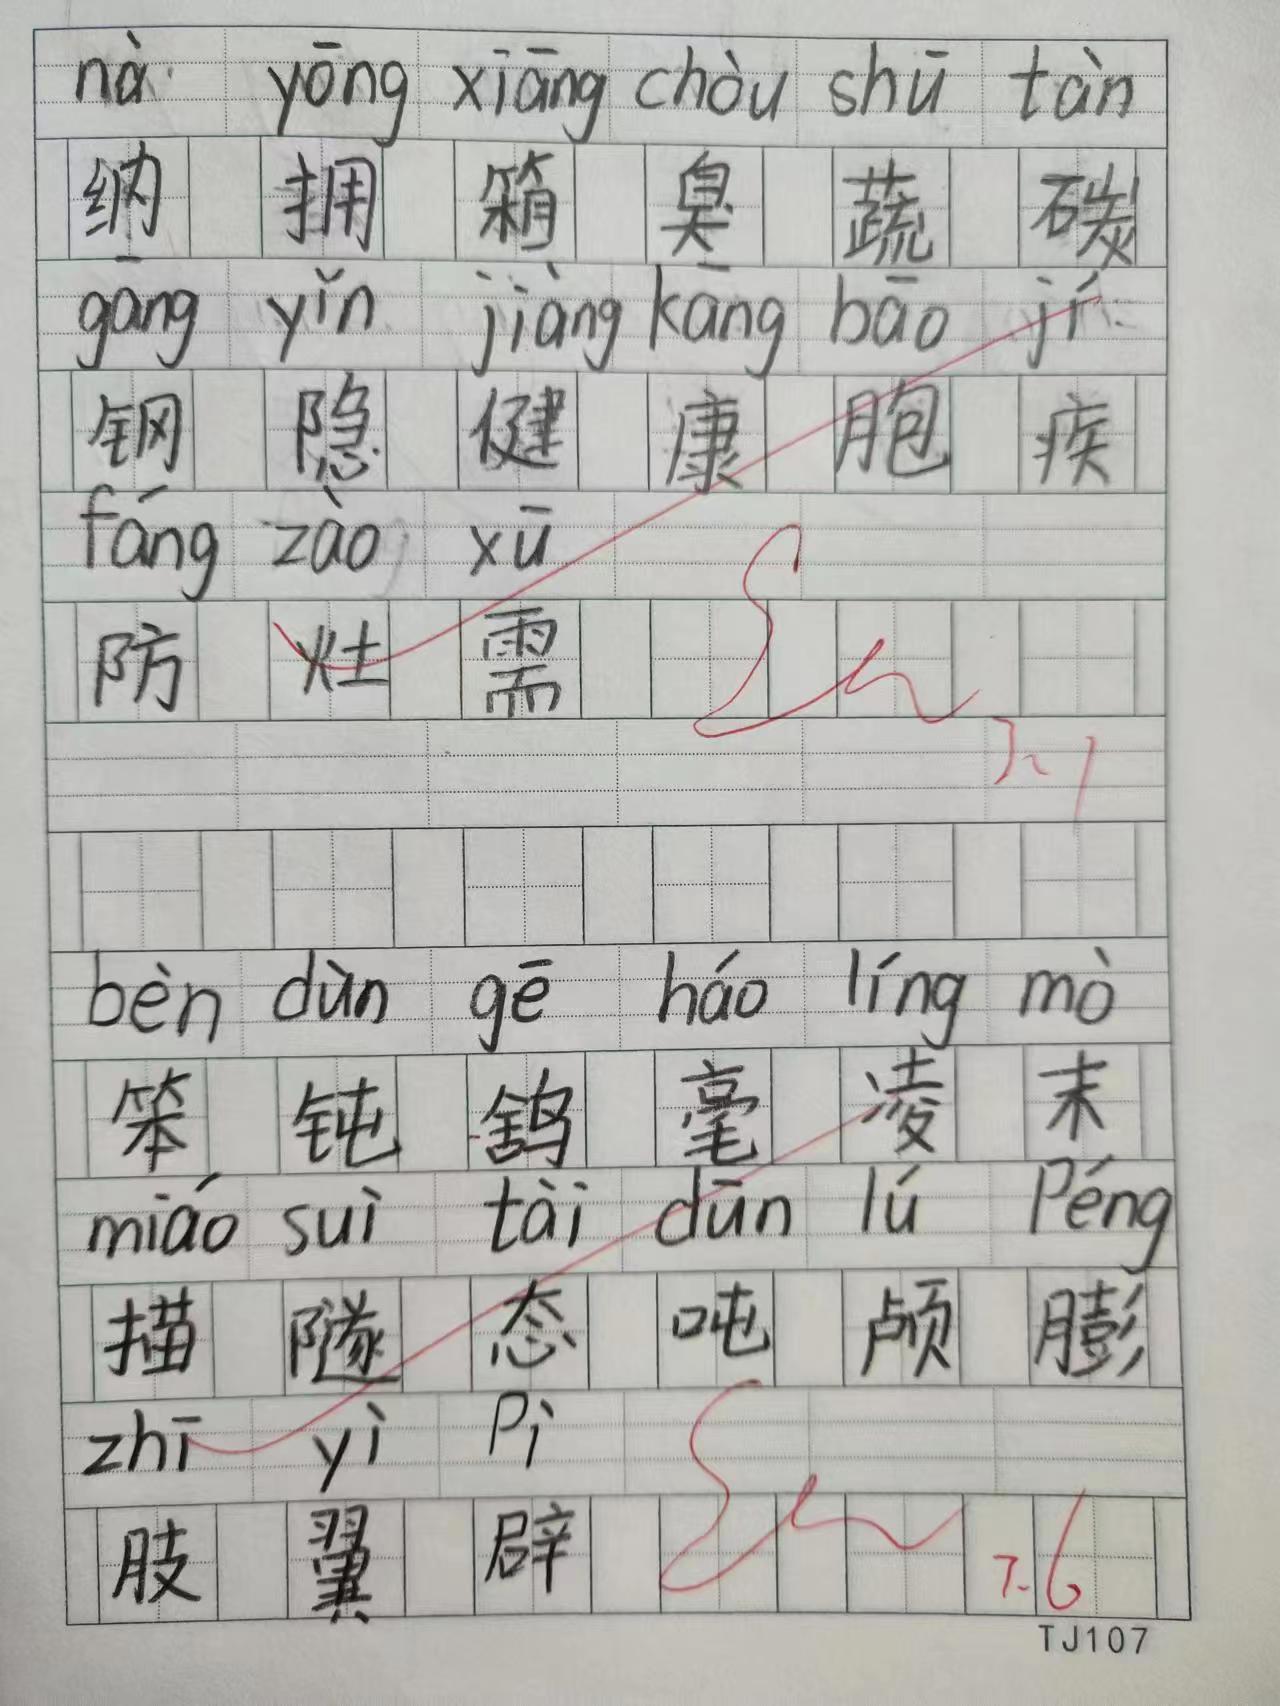 nà yōng xiāng chòu shū tàn
纳 拥 箱 臭 蔬 碳
gāng yǐn jiàng kāng bāo jí
钢 隐 健 康 胞 疾
fáng zào xū
防 灶 需
7.1
bèn dùn gē háo líng mò
笨 钝 鸽 毫 凌 末
miáo suì tài dūn lú Péng
描 隧 态 吨 颅 膨
zhī yì Pì
肢 翼 辟
7.6
TJ107